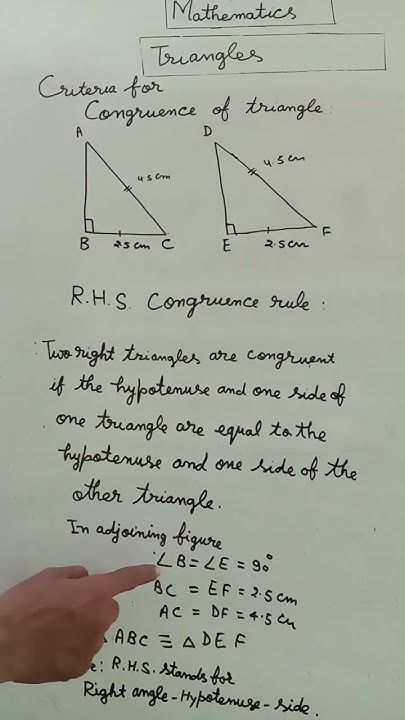 Mathematics
Triangles
Criteria for
Congruence of triangle:
A
D
4.5 cm
4.5 cm
B
2.5 cm
C
E
2.5 cm
F
R.H.S. Congruence rule:
Two right triangles are congruent
if the hypotenuse and one side of
one triangle are equal to the
hypotenuse and one side of the
other triangle.
In adjoining figure
∠B = ∠E = 90°
BC = EF = 2.5 cm
AC = DF = 4.5 cm
ABC ≡ △ DEF
: R.H.S. stands for
Right angle-Hypotenuse-side.